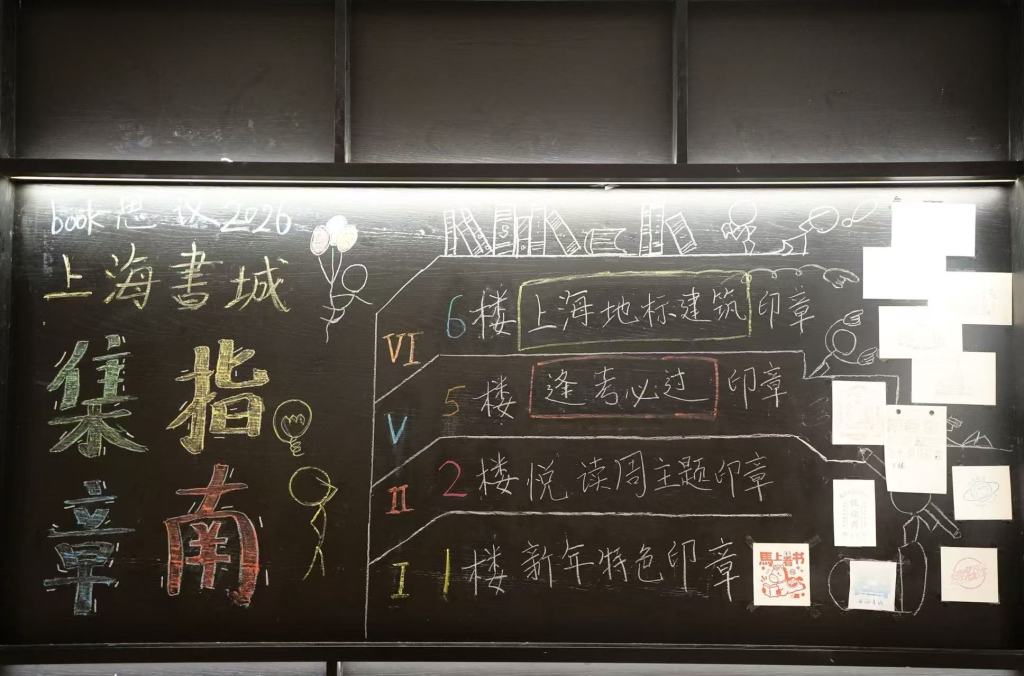 book思议2026
上海書城
集指
章南
VI 6楼 上海地标建筑印章
V 5楼 逢考必过 印章
II 2楼 悦读周主题印章
I 1楼 新年特色印章
馬上 书